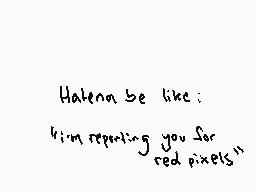 Hatena be like:
"i'm reporting you for
red pixels"